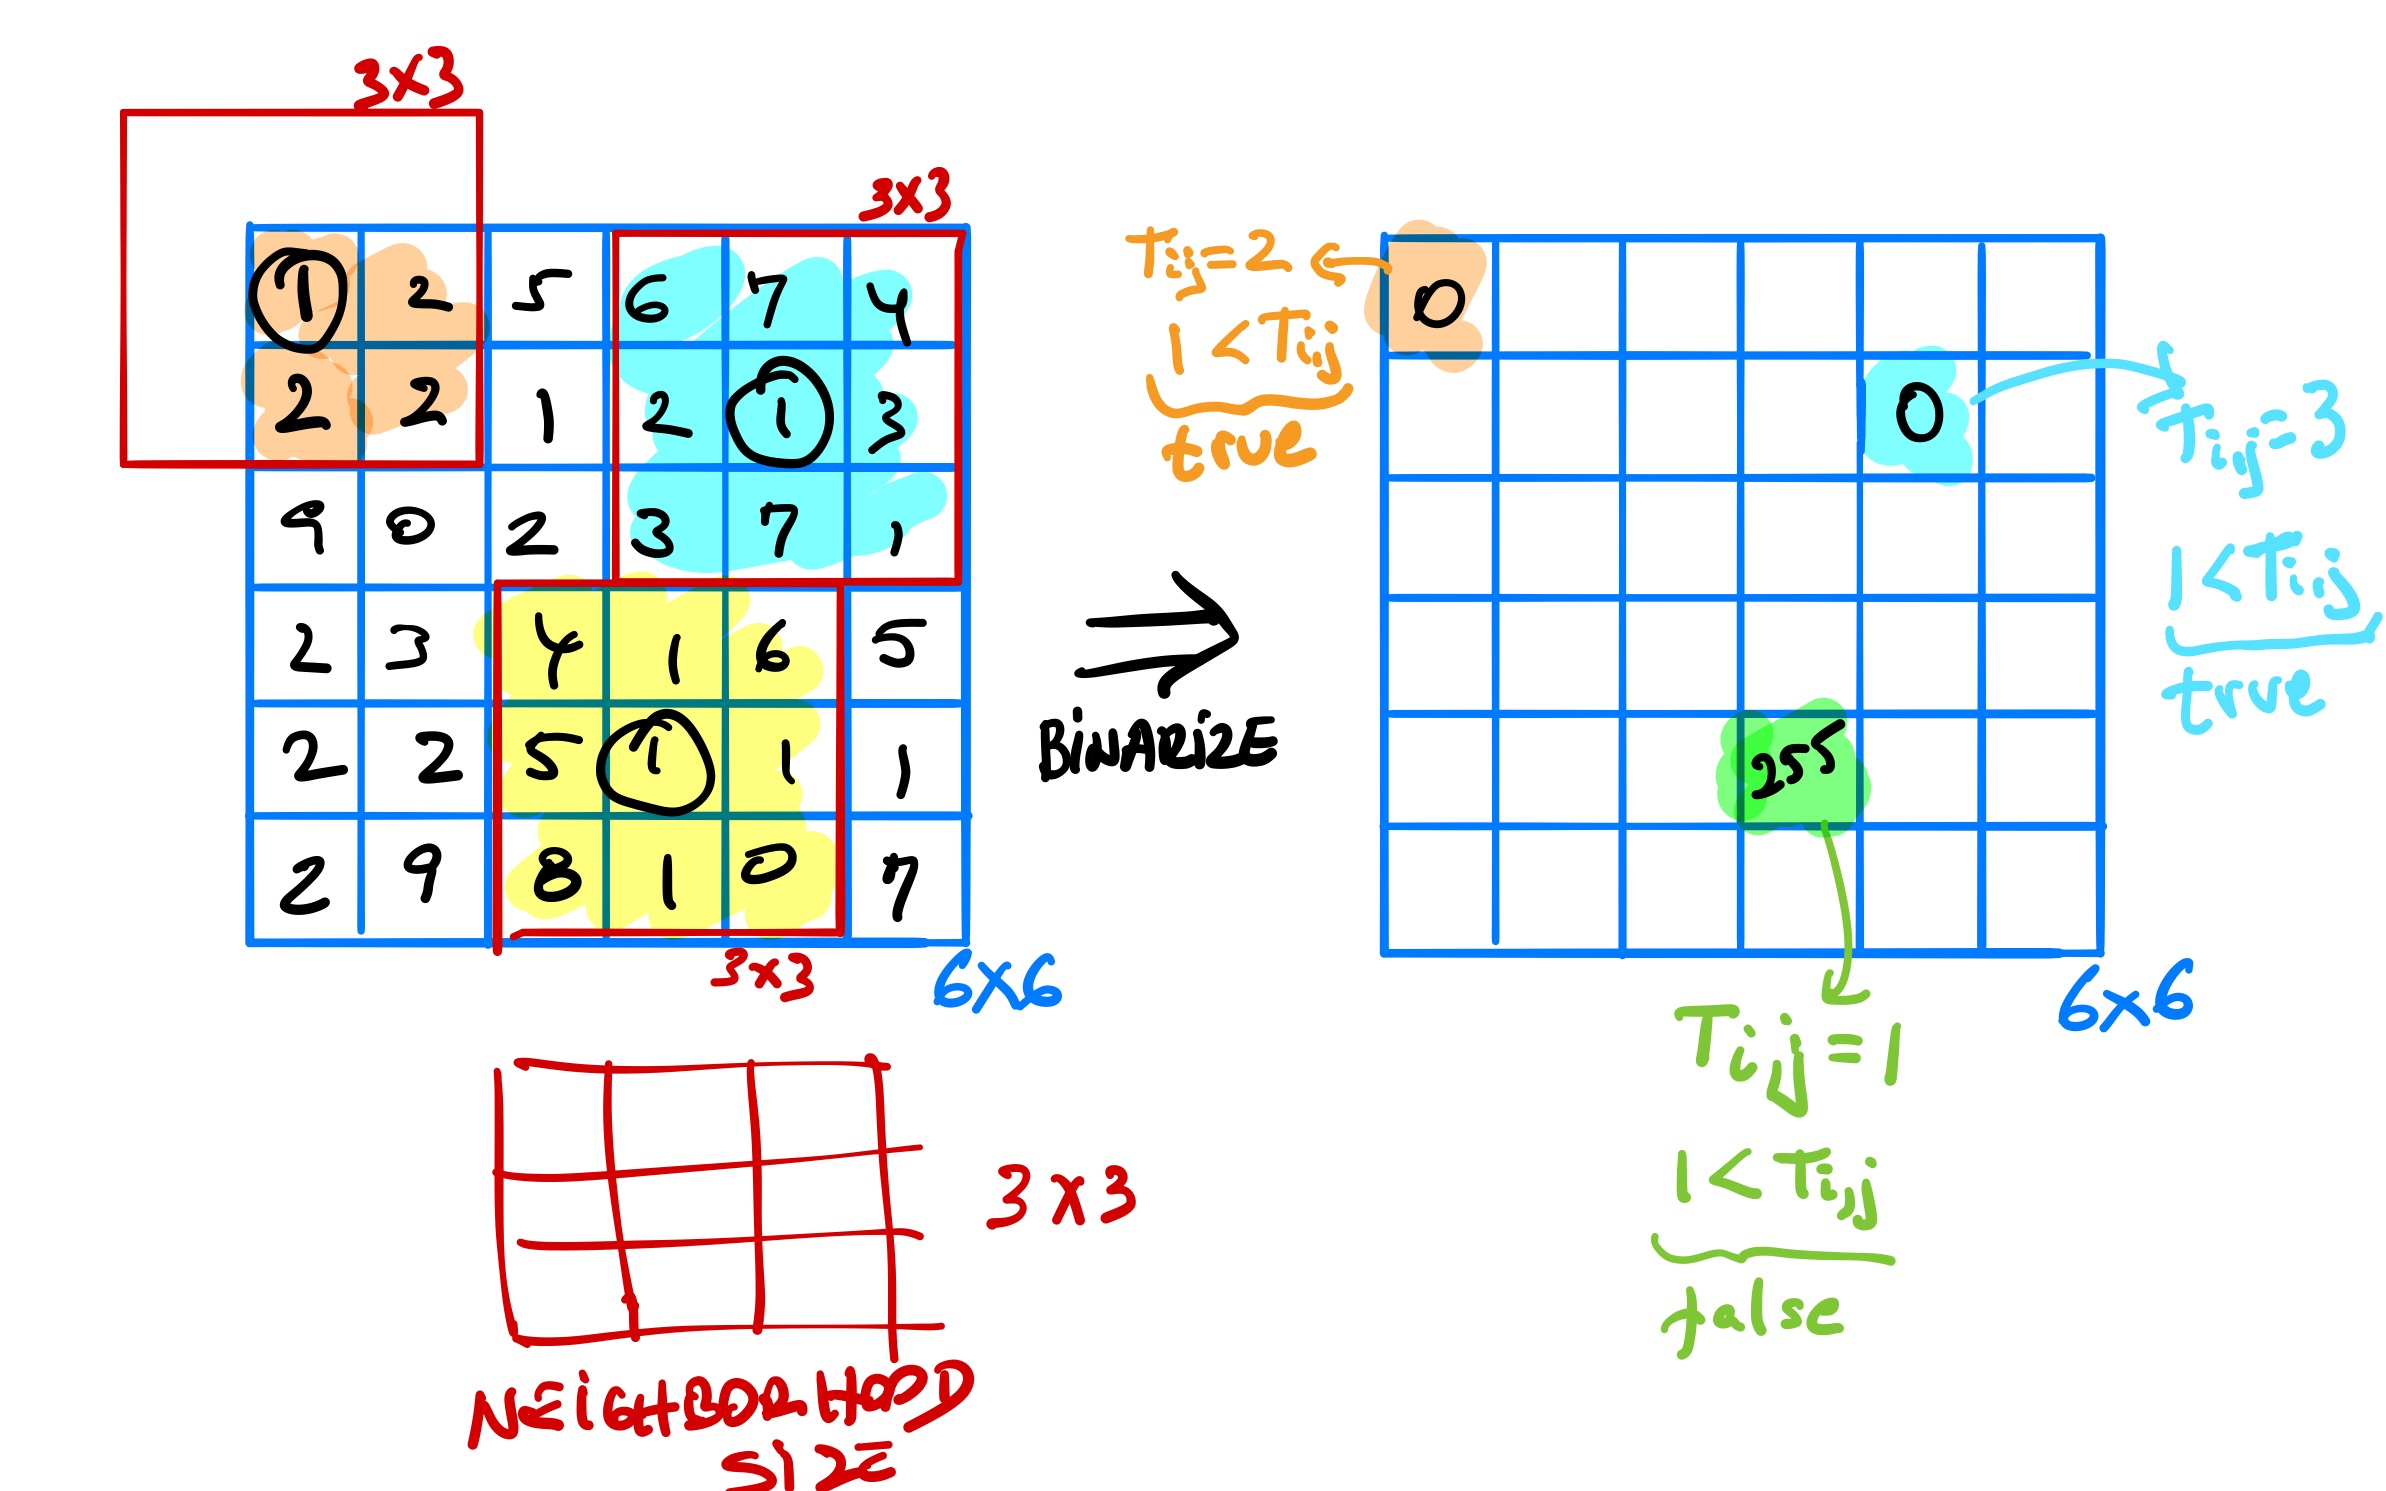 3x3
3x3
1 2 5 6 7 4
2 2 1 2 1 3
9 0 2 3 7 1
2 3 4 1 6 5
2 2 5 1 1 1
2 9 8 1 0 7
3x3
6x6
BiNARIZE
Ti,j=2
1<Ti,j
true
0
0
255
6x6
Ti,j=3
1<Ti,j
true
Ti,j=1
1<Ti,j
false
3x3
NEiGHBORHOOD
SIZE